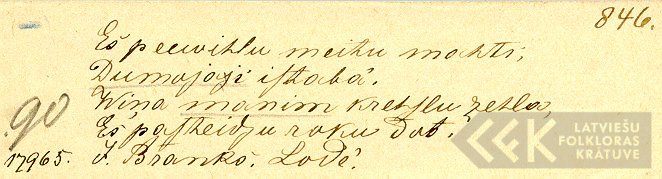 846.
Es peewihlu meitu mahti,
Dumajaji istabâ.
Wina manim kretslu zehla,
Es pasteidzu roku dot.
90
17965. J. Brankš. Lodê.
LATVIEŠU
FOLKLORAS
KRĀTUVE